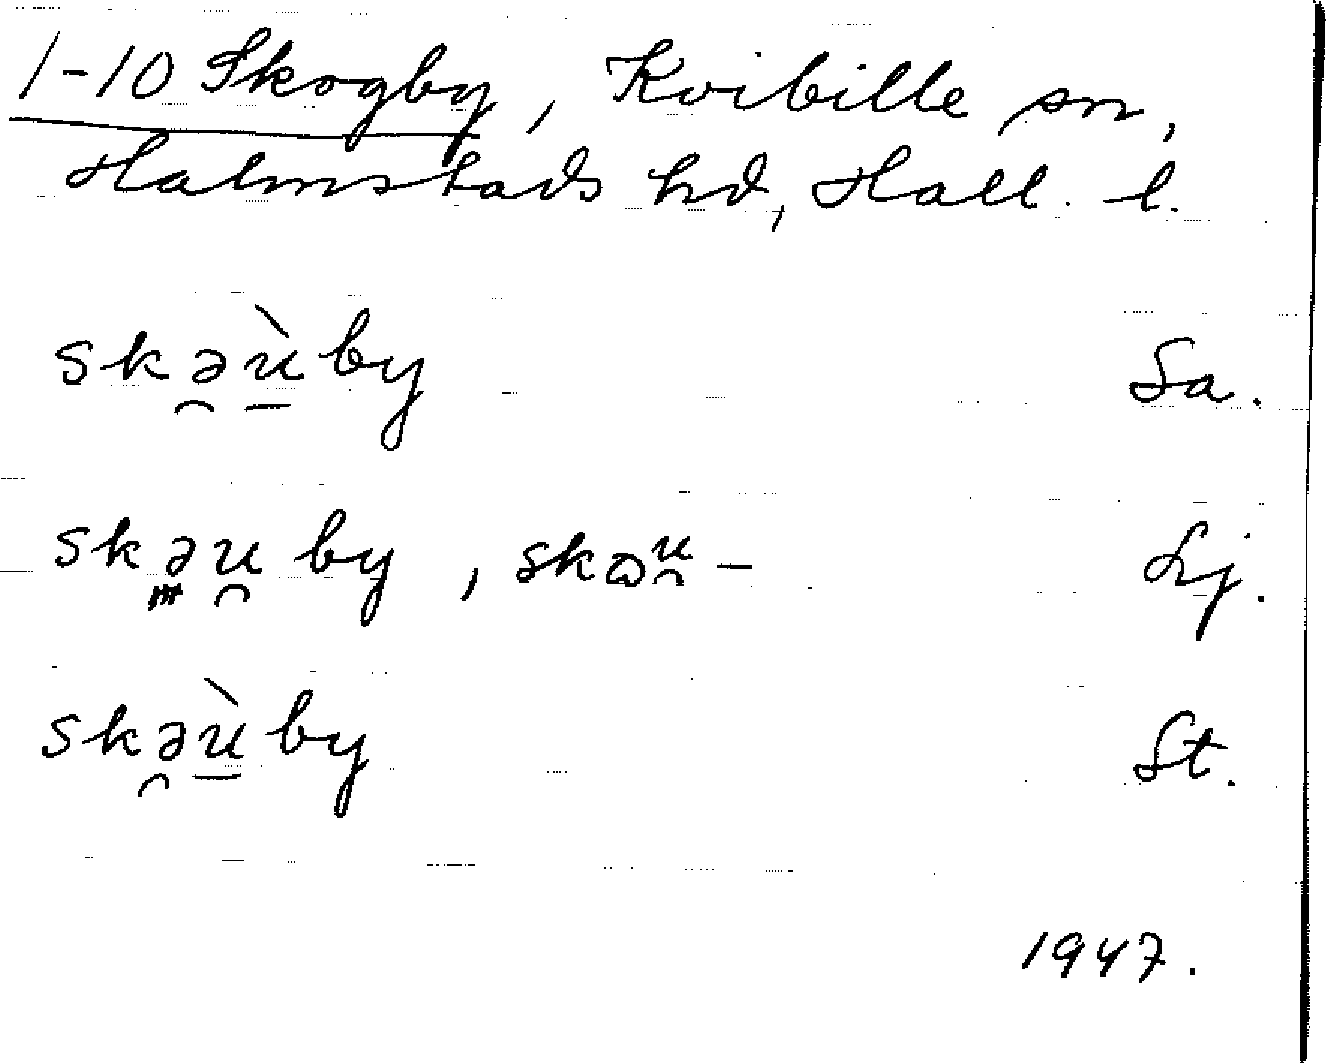 1-10 Skogby, Kvibille sn,
Halmstads hd, Hall. l.
skə̯ù̱by Sa.
skəu̯by, skɷu̯- Lj.
skə̯ù̱by St.
1947.